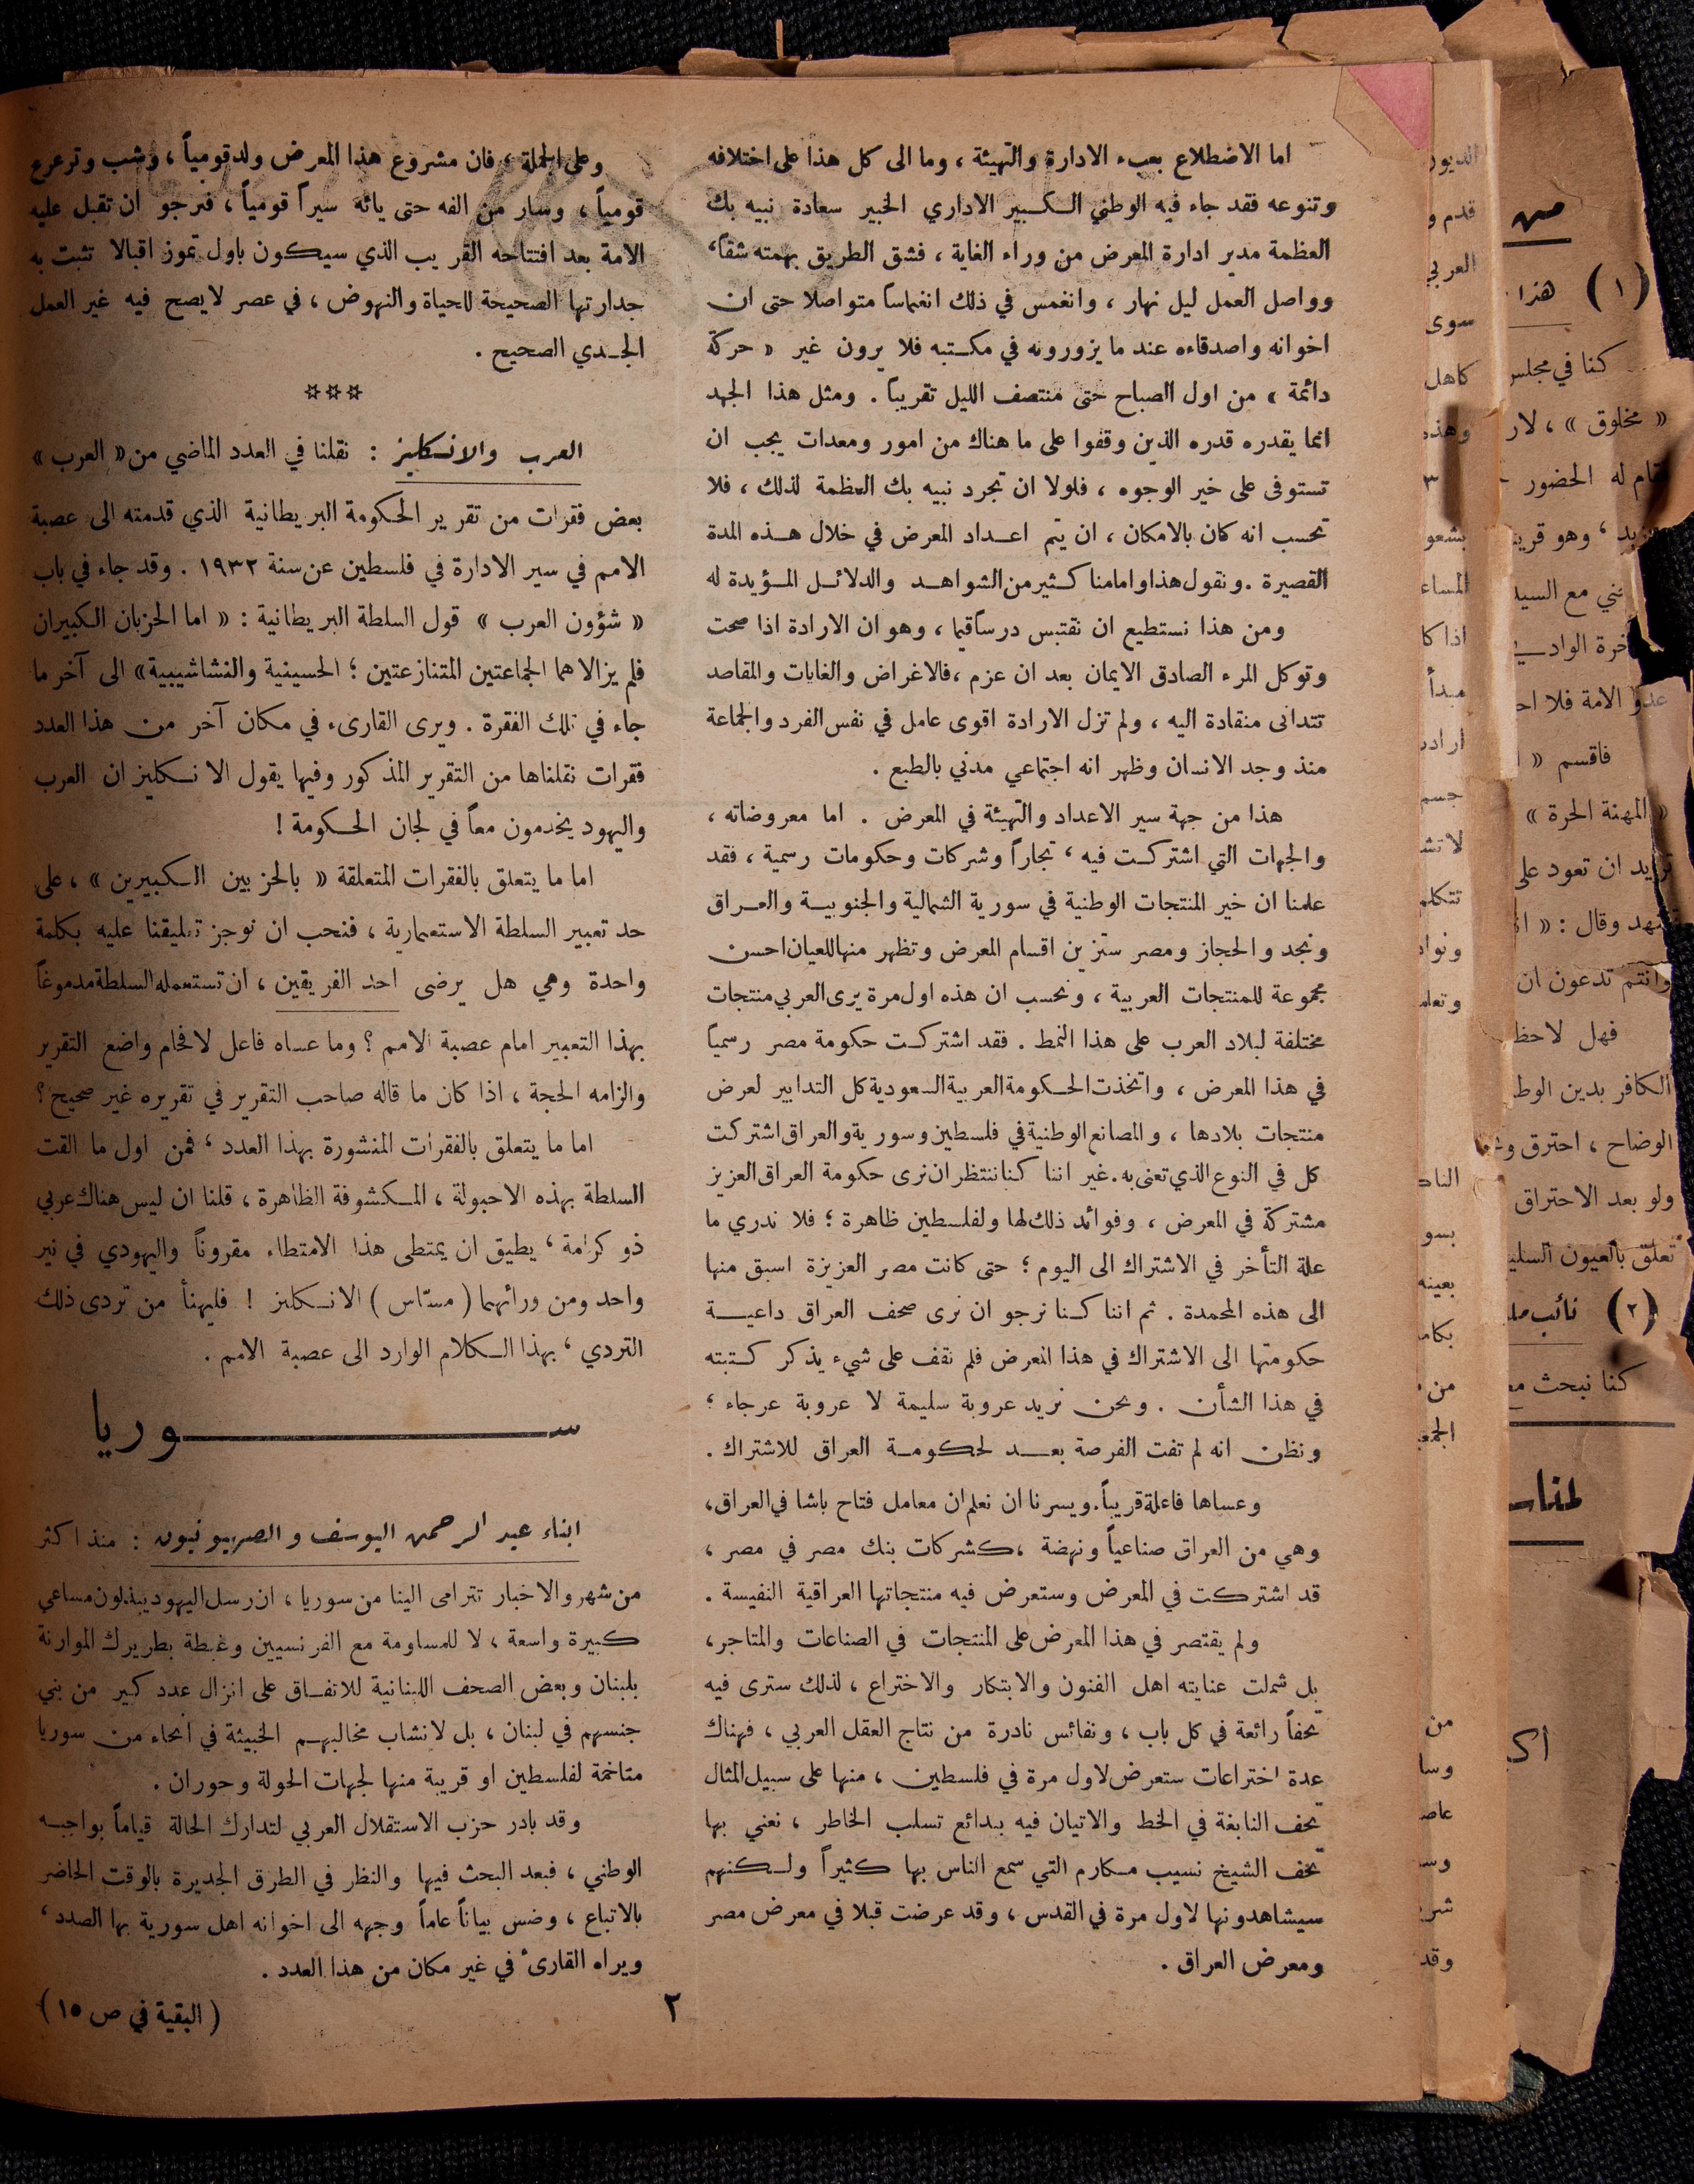 اما الاضطلاع بعبء الادارة والتهيئة ، وما الى كل هذا على اختلافه
وتنوعه فقد جاء فيه الوطني الكبير الاداري الخبير سعادة نبيه بك
العظمة مدير ادارة المعرض من وراء الغاية ، فشق الطريق بهمته شقاً ،
وواصل العمل ليل نهار ، وانغمس في ذلك انغماساً متواصلا حتى ان
اخوانه واصدقاءه عند ما يزورونه في مكتبه فلا يرون غير « حركة
دائمة » من اول الصباح حتى منتصف الليل تقريباً . ومثل هذا الجهد
انما يقدره قدره الذين وقفوا على ما هناك من امور ومعدات يجب ان
تستوفى على خير الوجوه ، فلولا ان تجرد نبيه بك العظمة لذلك ، فلا
نحسب انه كان بالامكان ، ان يتم اعداد المعرض في خلال هذه المدة
القصيرة . ونقول هذا وامامنا كثير من الشواهد والدلائل المؤيدة له
ومن هذا نستطيع ان نقتبس درساً قيما ، وهو ان الارادة اذا صحت
وتوكل المرء الصادق الايمان بعد ان عزم ، فالاغراض والغايات والمقاصد
تتدانى منقادة اليه ، ولم تزل الارادة اقوى عامل في نفس الفرد والجماعة
منذ وجد الانسان وظهر انه اجتماعي مدني بالطبع .
هذا من جهة سير الاعداد والتهيئة في المعرض . اما معروضاته ،
والجهات التي اشتركت فيه ، تجاراً وشركات وحكومات رسمية ، فقد
علمنا ان خير المنتجات الوطنية في سورية الشمالية والجنوبية والعراق
ونجد والحجاز ومصر ستزين اقسام المعرض وتظهر منها للعيان احسن
مجموعة للمنتجات العربية ، ونحسب ان هذه اول مرة يرى العربي منتجات
مختلفة لبلاد العرب على هذا النمط . فقد اشتركت حكومة مصر رسمياً
في هذا المعرض ، واتخذت الحكومة العربية السعودية كل التدابير لعرض
منتجات بلادها ، والمصانع الوطنية في فلسطين وسورية والعراق اشتركت
كل في النوع الذي تعنى به . غير اننا كنا ننتظر ان نرى حكومة العراق العزيز
مشتركة في المعرض ، وفوائد ذلك لها ولفلسطين ظاهرة ؛ فلا ندري ما
علة التأخر في الاشتراك الى اليوم ؛ حتى كانت مصر العزيزة اسبق منها
الى هذه المحمدة . ثم اننا كنا نرجو ان نرى صحف العراق داعية
حكومتها الى الاشتراك في هذا المعرض فلم نقف على شيء يذكر كتبته
في هذا الشأن . ونحن نريد عروبة سليمة لا عروبة عرجاء ؛
ونظن انه لم تفت الفرصة بعد لحكومة العراق للاشتراك .
وعساها فاعلة قريباً . ويسرنا ان نعلم ان معامل فتاح باشا في العراق ،
وهي من العراق صناعياً ونهضة ، كشركات بنك مصر في مصر ،
قد اشتركت في المعرض وستعرض فيه منتجاتها العراقية النفيسة .
ولم يقتصر في هذا المعرض على المنتجات في الصناعات والمتاجر ،
بل شملت عنايته اهل الفنون والابتكار والاختراع ، لذلك سترى فيه
تحفاً رائعة في كل باب ، ونفائس نادرة من نتاج العقل العربي ، فهناك
عدة اختراعات ستعرض لاول مرة في فلسطين ، منها على سبيل المثال
تحف النابغة في الخط والاتيان فيه ببدائع تسلب الخاطر ، نعني بها
تحف الشيخ نسيب مكارم التي سمع الناس بها كثيراً ولكنهم
سيشاهدونها لاول مرة في القدس ، وقد عرضت قبلا في معرض مصر
ومعرض العراق .
وعلى الجملة ، فان مشروع هذا المعرض ولد قومياً ، وشب وترعرع
قومياً ، وسار من الفه حتى يائه سيراً قومياً ، فنرجو ان تقبل عليه
الامة بعد افتتاحه القريب الذي سيكون باول تموز اقبالا تثبت به
جدارتها الصحيحة للحياة والنهوض ، في عصر لا يصح فيه غير العمل
الجدي الصحيح .
***
العرب والانكليز : نقلنا في العدد الماضي من « العرب »
بعض فقرات من تقرير الحكومة البريطانية الذي قدمته الى عصبة
الامم في سير الادارة في فلسطين عن سنة ١٩٣٢ . وقد جاء في باب
« شؤون العرب » قول السلطة البريطانية : « اما الحزبان الكبيران
فلم يزالا هما الجماعتين المتنازعتين ؛ الحسينية والنشاشيبية » الى آخر ما
جاء في تلك الفقرة . ويرى القارىء في مكان آخر من هذا العدد
فقرات نقلناها من التقرير المذكور وفيها يقول الانكليز ان العرب
واليهود يخدمون معاً في لجان الحكومة !
اما ما يتعلق بالفقرات المتعلقة « بالحزبين الكبيرين » ، على
حد تعبير السلطة الاستعمارية ، فنحب ان نوجز تعليقنا عليه بكلمة
واحدة وهي هل يرضى احد الفريقين ، ان تستعمله السلطة مدموغاً
بهذا التعبير امام عصبة الامم ؟ وما عساه فاعل لافحام واضع التقرير
والزامه الحجة ، اذا كان ما قاله صاحب التقرير في تقريره غير صحيح ؟
اما ما يتعلق بالفقرات المنشورة بهذا العدد ، فمن اول ما القت
السلطة بهذه الاحبولة ، المكشوفة الظاهرة ، قلنا ان ليس هناك عربي
ذو كرامة ، يطيق ان يمتطى هذا الامتطاء مقروناً واليهودي في نير
واحد ومن ورائهما ( مسّاس ) الانكليز ! فليهنأ من تردى ذلك
التردي ، بهذا الكلام الوارد الى عصبة الامم .
ســـــوريا
ابناء عبد الرحمن اليوسف والصهيونيون : منذ اكثر
من شهر والاخبار تترامى الينا من سوريا ، ان رسل اليهود يبذلون مساعي
كبيرة واسعة ، لا للمساومة مع الفرنسيين وغبطة بطريرك الموارنة
بلبنان وبعض الصحف اللبنانية للاتفاق على انزال عدد كبير من بني
جنسهم في لبنان ، بل لانشاب مخالبهم الخبيثة في انحاء من سوريا
متاخمة لفلسطين او قريبة منها لجهات الحولة وحوران .
وقد بادر حزب الاستقلال العربي لتدارك الحالة قياماً بواجبه
الوطني ، فبعد البحث فيها والنظر في الطرق الجديرة بالوقت الحاضر
بالاتباع ، وضس بياناً عاماً وجهه الى اخوانه اهل سورية بهذا الصدد ،
ويراه القارئ في غير مكان من هذا العدد .
( البقية في ص ١٥ )
٢
الديور
قدم و
العربي
سوى
كاهل
وهذه
٣
المساء
اذا كا
مبدأ
جسم
وقد
( ١ ) هذا
كنا في مجلس
« مخلوق » ، لار
فقام له الحضور
عدو الامة فلا
فاقسم «
« المهنة الحرة »
تريد ان تعود على
وقال : «
وانتم تدعون ان
فهل لاحظ
الكافر بدين الوط
الوضاح ، احترق
ولو بعد الاحتراق
تعلق بالعيون
( ٢ ) نائب
كنا نبحث